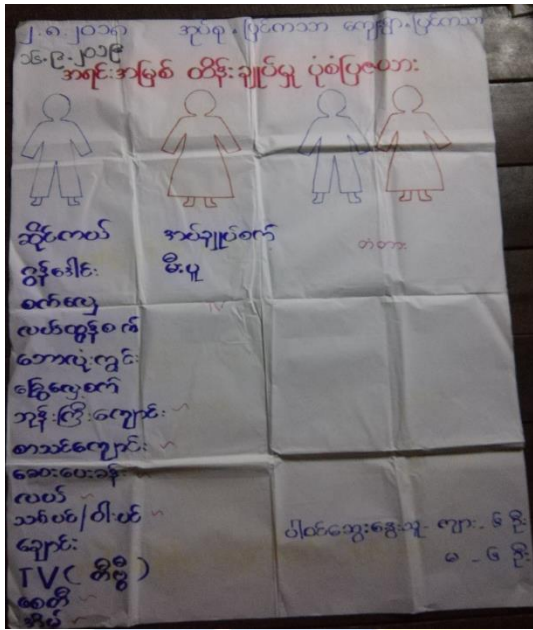 ၂.၈.၂၀၁၉ အုပ်စု - ပြင်ကသာ ကျေးရွာ - ပြင်ကသာ
၁၆.၉.၂၀၁၉
အရင်းအမြစ် ထိန်းချုပ်မှု ပုံစံပြဇယား
ဆိုင်ကယ် အပ်ချုပ်စက် တံတား
ဂွန်ဒေါင်း မီးပူ
စက်လှေ
လယ်ထွန်စက်
ဘောလုံးကွင်း
ခြွေလှေ့စက်
ဘုန်းကြီးကျောင်း
စာသင်ကျောင်း
ဆေးပေးခန်း
လယ်
သစ်ပင်/ဝါးပင်
ချောင်း
TV ( တီဗွီ )
စေတီ
အိမ်
ပါဝင်ဆွေးနွေးသူ - ကျား - ၆ ဦး
မ - ၆ ဦး